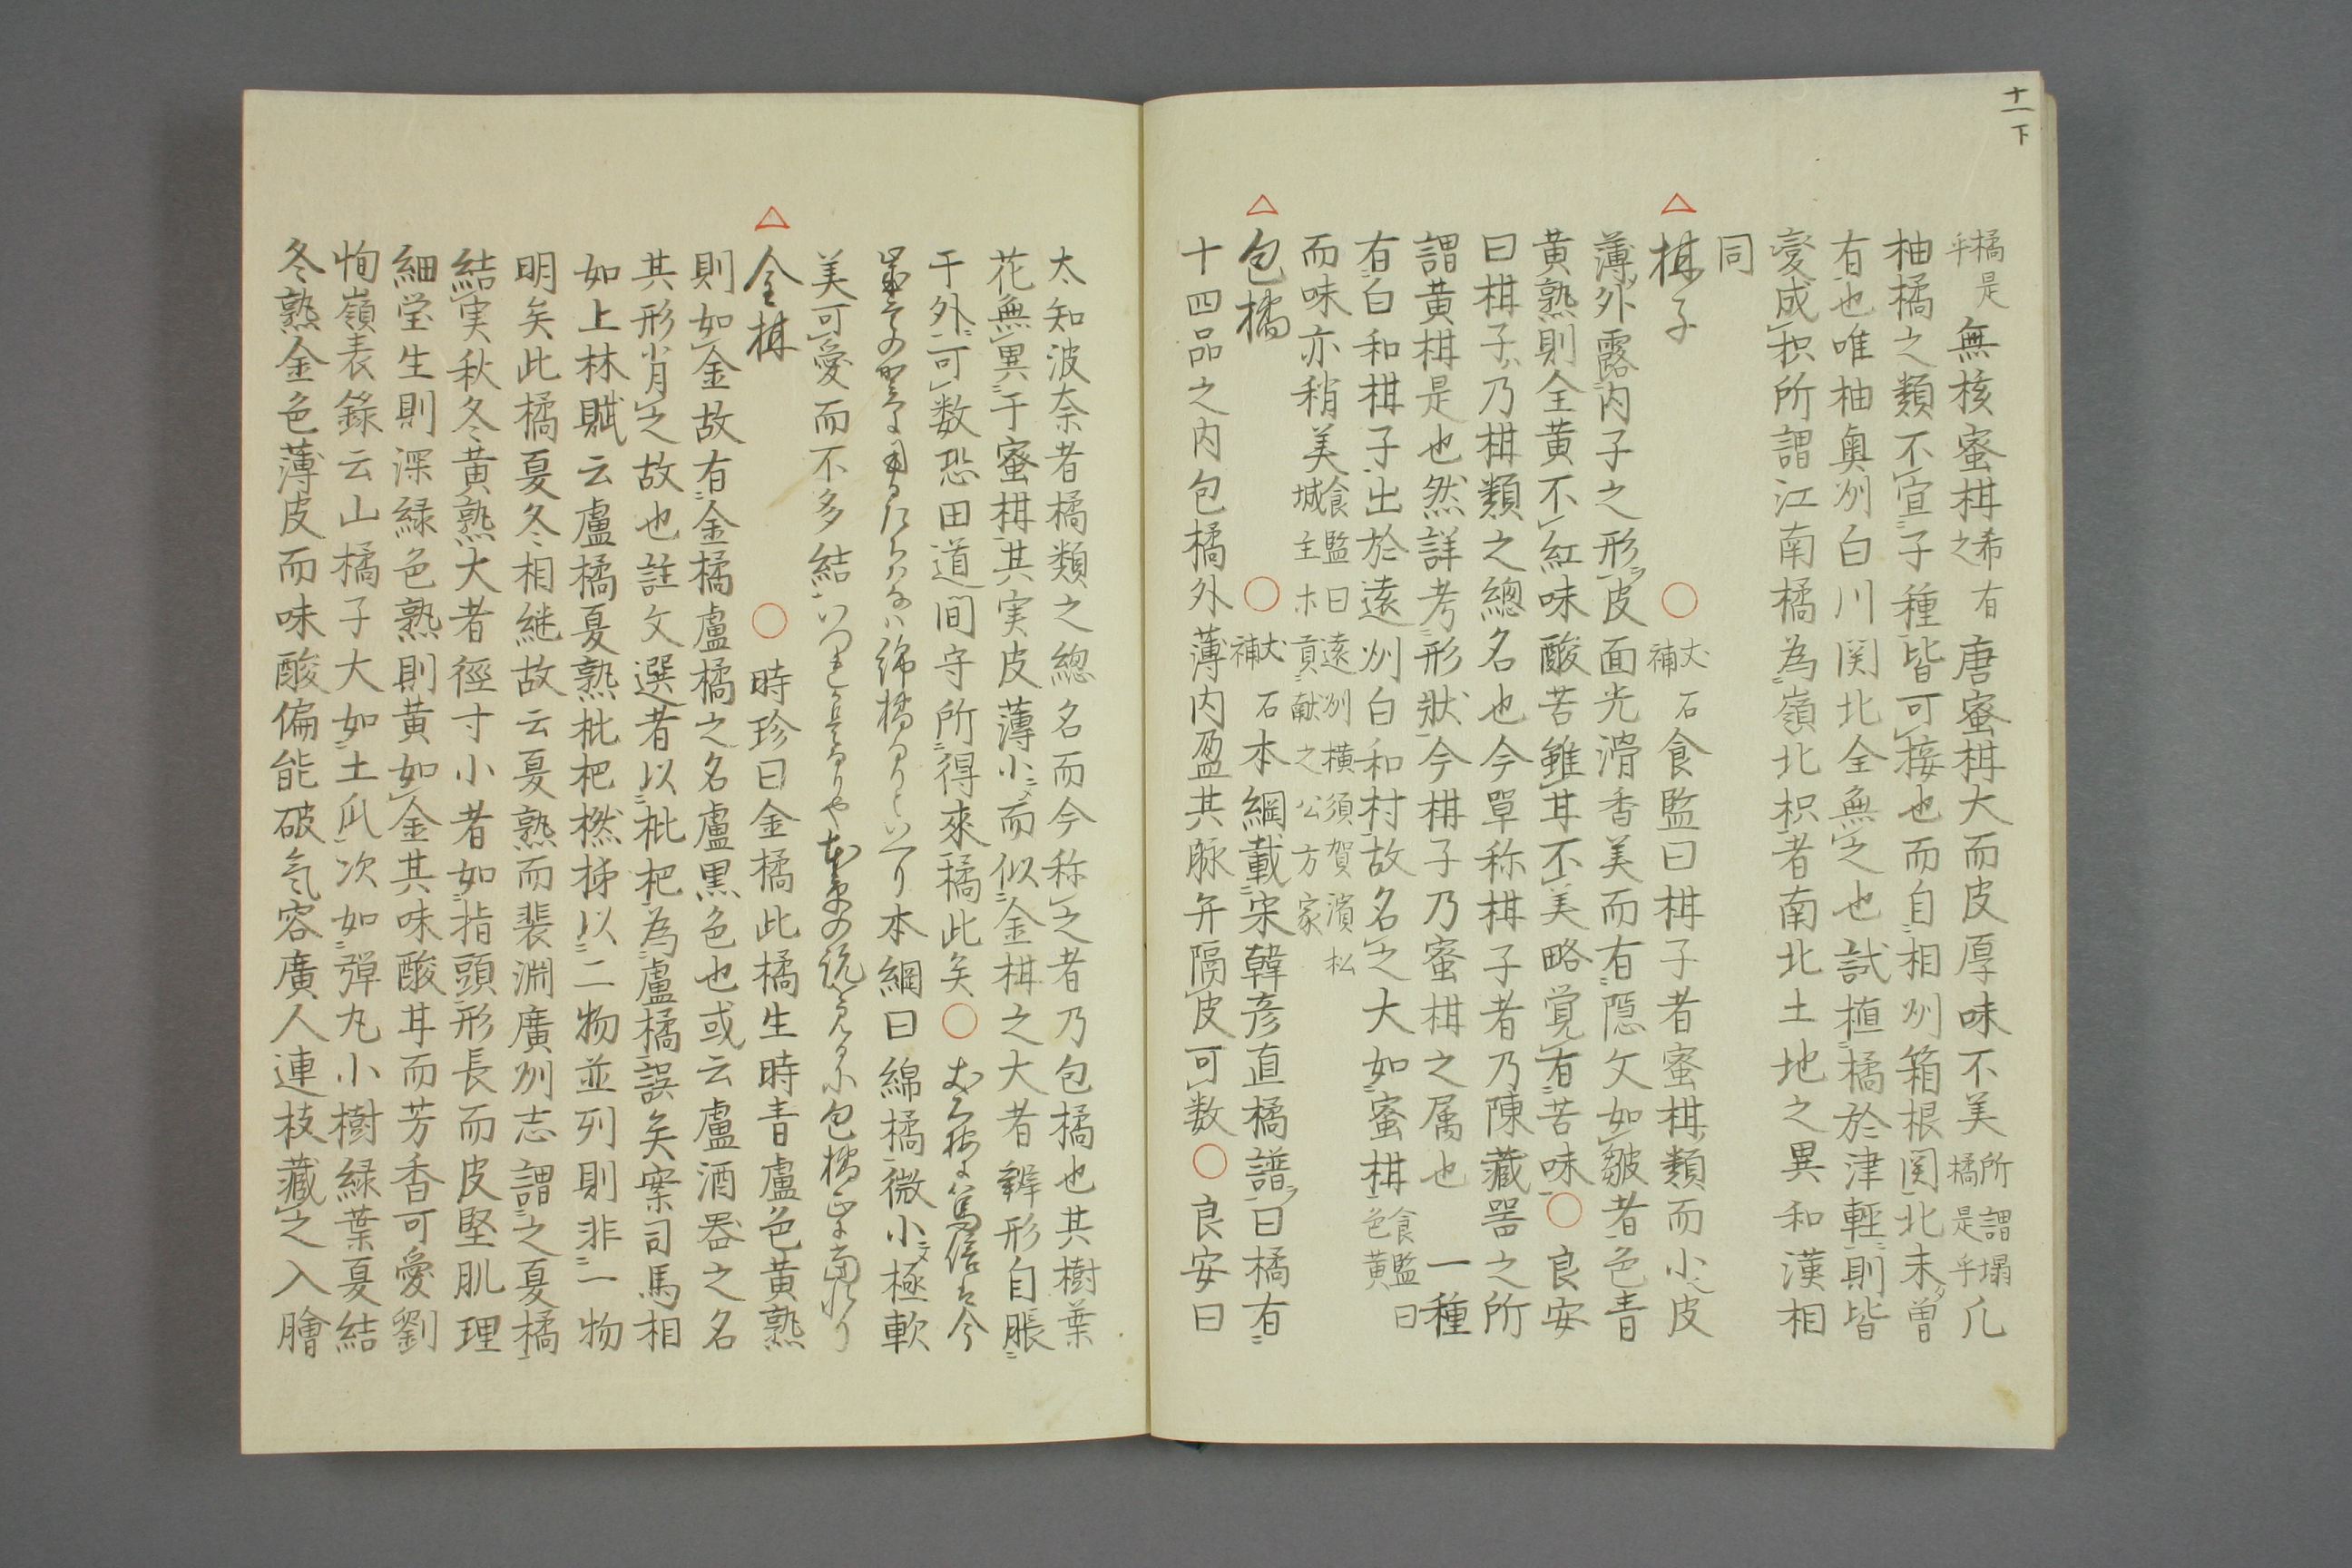 十一下
橘是乎無核蜜柑希有之唐蜜柑大而皮厚味不美所謂塌橘是乎凡
柚橘之類不宣子種皆可接也而自相刕箱根関北未曽
有也唯柚奥刕白川関北全無之也試植橘於津輕則皆
変成枳所謂江南橘為嶺北枳者南北土地之異和漢相
同
△柑子 ○ 大補 石食監曰柑子者蜜柑類而小皮
薄外露内子之形皮面光滑香美而有隠文如皺者色青
黄熟則全黄不紅味酸苦雖甘不美略覚有苦味○良安
曰柑子乃柑類之總名也今單称柑子者乃陳藏噐之所
謂黄柑是也然詳考形狀今柑子乃蜜柑之属也 一種
有白和柑子出於遠刕白和村故名之大如蜜柑食監曰色黄
而味亦稍美食監曰遠刕横須賀濱松城主木貢献之公方家
△包橘 ○ 大補 石本綱載宋韓彦直橘譜曰橘有
十四品之内包橘外薄内盈其脉弁隔皮可数○良安曰
太知波奈者橘類之總名而今称之者乃包橘也其樹葉
花無異于蜜柑其実皮薄小而似金柑之大者鞾形自脹
于外可数恐田道間守所得來橘此矣○
本綱曰綿橘微小極軟
美可愛而不多結
△金柑 ○時珍曰金橘此橘生時青盧色黄熟
則如金故有金橘盧橘之名盧黒色也或云盧酒噐之名
其形肖之故也註文選者以枇杷為盧橘誤矣案司馬相
如上林賦云盧橘夏熟枇杷橪柿以二物並列則非一物
明矣此橘夏冬相継故云夏熟而裴淵廣刕志謂之夏橘
結実秋冬黄熟大者徑寸小者如指頭形長而皮堅肌理
細莹生則深緑色熟則黄如金其味酸甘而芳香可愛劉
恂嶺表錄云山橘子大如土瓜次如弾丸小樹緑葉夏結
冬熟金色薄皮而味酸偏能破气容廣人連枝藏之入膾